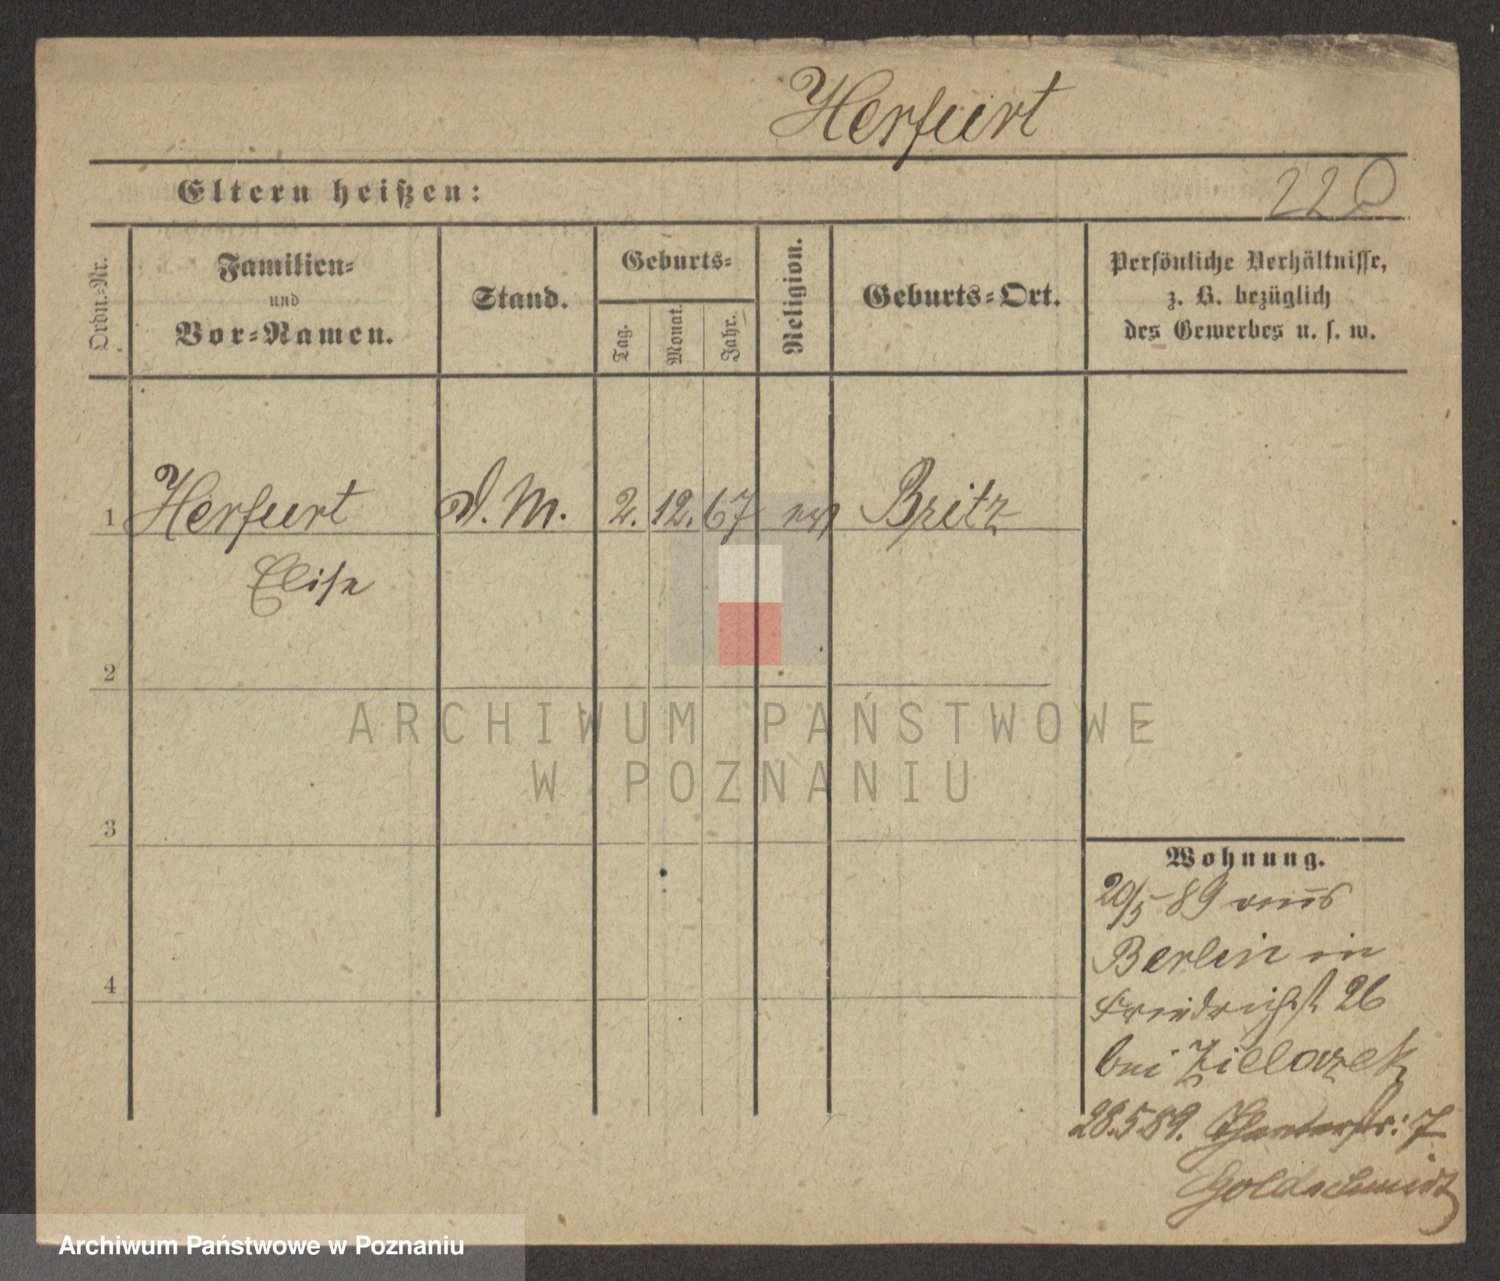 Herfurt
Eltern heißen:
220
Ordn.-Nr.
Familien-
und
Vor-Namen.
Stand.
Geburts-
Tag.
Monat.
Jahr.
Religion.
Geburts-Ort.
Persönliche Verhältnisse,
z. B. bezüglich
des Gewerbes u. s. w.
1 Herfurt D. M. 2. 12. 67 ev Britz
Elise
2
ARCHIWUM PAŃSTWOWE
W POZNANIU
3
4
Wohnung.
20/5 89 aus
Berlin in
Friedrichst 26
bei Zielazek
28.5.89. Theaterstr: 7
Goldschmidt
Archiwum Państwowe w Poznaniu